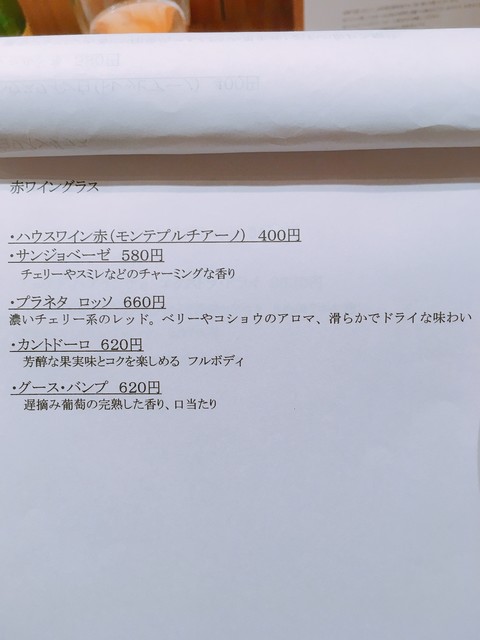 赤ワイングラス
・ハウスワイン赤(モンテプルチアーノ) 400円
・サンジョベーゼ 580円
チェリーやスミレなどのチャーミングな香り
・プラネタ ロッソ 660円
濃いチェリー系のレッド。ベリーやコショウのアロマ、滑らかでドライな味わい
・カントドーロ 620円
芳醇な果実味とコクを楽しめる フルボディ
・グース・バンプ 620円
遅摘み葡萄の完熟した香り、口当たり